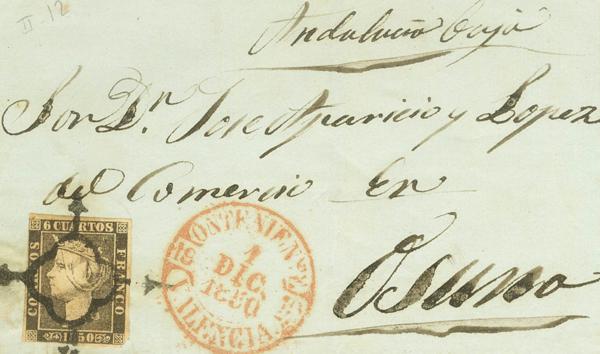 II-12
Andalucia baja
Sor Dn. Jose Aparicio y Lopez
del Comercio En
Osuna
6 CUARTOS
CORREOS
FRANCO
1850
ONTENIEN
1
DIC.
1850
VALENCIA